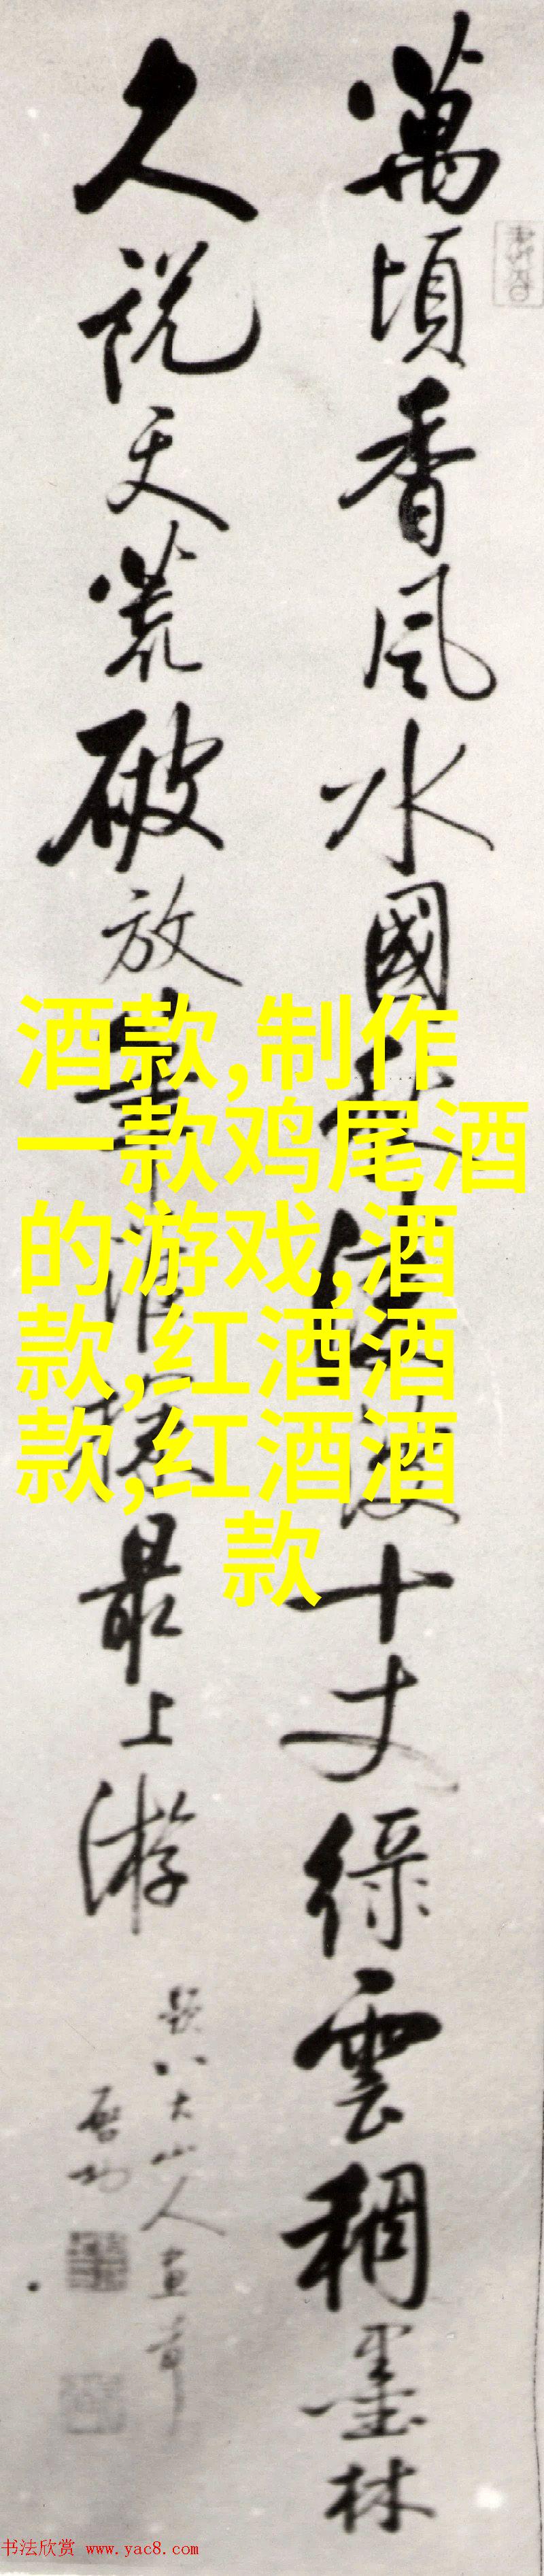 萬頃香風水國秋澄波十丈綠雲稠墨林
久說天荒破放筆誰探最上游
題八大山人畫卉
启功
酒款,制作
一款鸡尾酒
的游戏,酒
款,红酒酒
款,红酒酒
款
书法欣赏 www.yac8.com